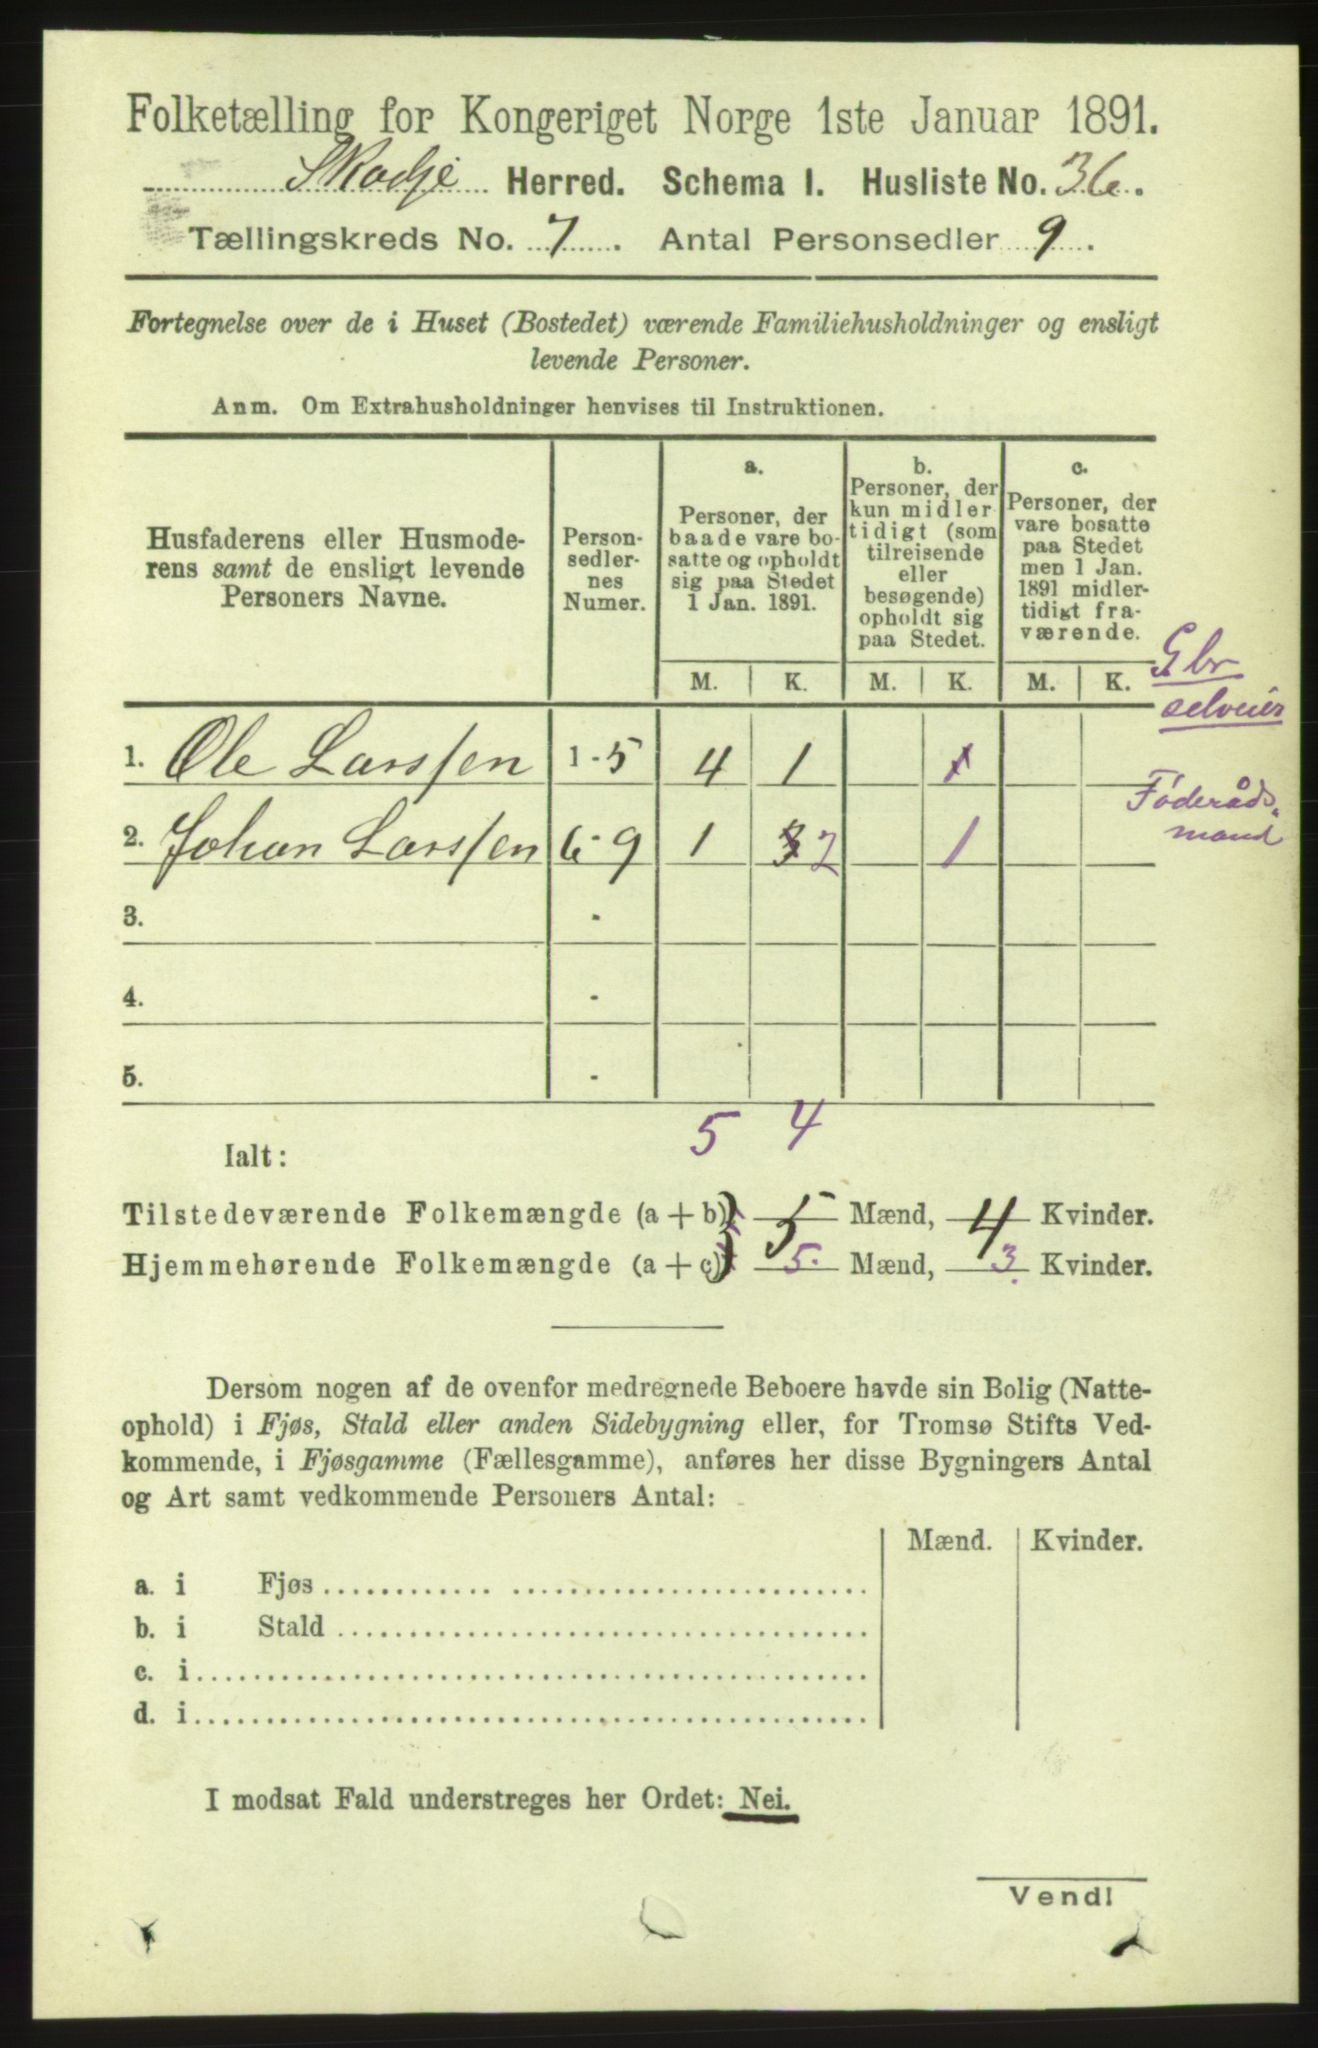 Folketælling for Kongeriget Norge 1ste Januar 1891.
Skodje Herred. Schema I. Husliste No. 36.
Tællingskreds No. 7. Antal Personsedler 9.
Fortegnelse over de i Huset (Bostedet) værende Familiehusholdninger og ensligt
levende Personer.
Anm. Om Extrahusholdninger henvises til Instruktionen.
Husfaderens eller Husmode-
rens samt de ensligt levende
Personers Navne.
Person-
sedler-
nes
Numer.
a.
Personer, der
baade vare bo-
satte og opholdt
sig paa Stedet
1 Jan. 1891.
b.
Personer, der
kun midler
tidigt (som
tilreisende
eller
besøgende)
opholdt sig
paa Stedet.
c.
Personer, der
vare bosatte
paa Stedet
men 1 Jan.
1891 midler-
tidigt fra-
værende.
M. K. M. K. M. K.
Gbr
selveier
1. Ole Larssen 1-5 4 1 1
Føderåds-
mand
2. Johan Larssen 6-9 1 3 2 1
3. -
4. -
5. -
5 4
Ialt:
Tilstedeværende Folkemængde (a + b) 5 Mænd, 4 Kvinder.
Hjemmehørende Folkemængde (a + c) 5. Mænd, 3. Kvinder.
Dersom nogen af de ovenfor medregnede Beboere havde sin Bolig (Natte-
ophold) i Fjøs, Stald eller anden Sidebygning eller, for Tromsø Stifts Ved-
kommende, i Fjøsgamme (Fællesgamme), anføres her disse Bygningers Antal
og Art samt vedkommende Personers Antal:
Mænd. Kvinder.
a. i Fjøs
b. i Stald
c. i
d. i
I modsat Fald understreges her Ordet: Nei.
Vend!